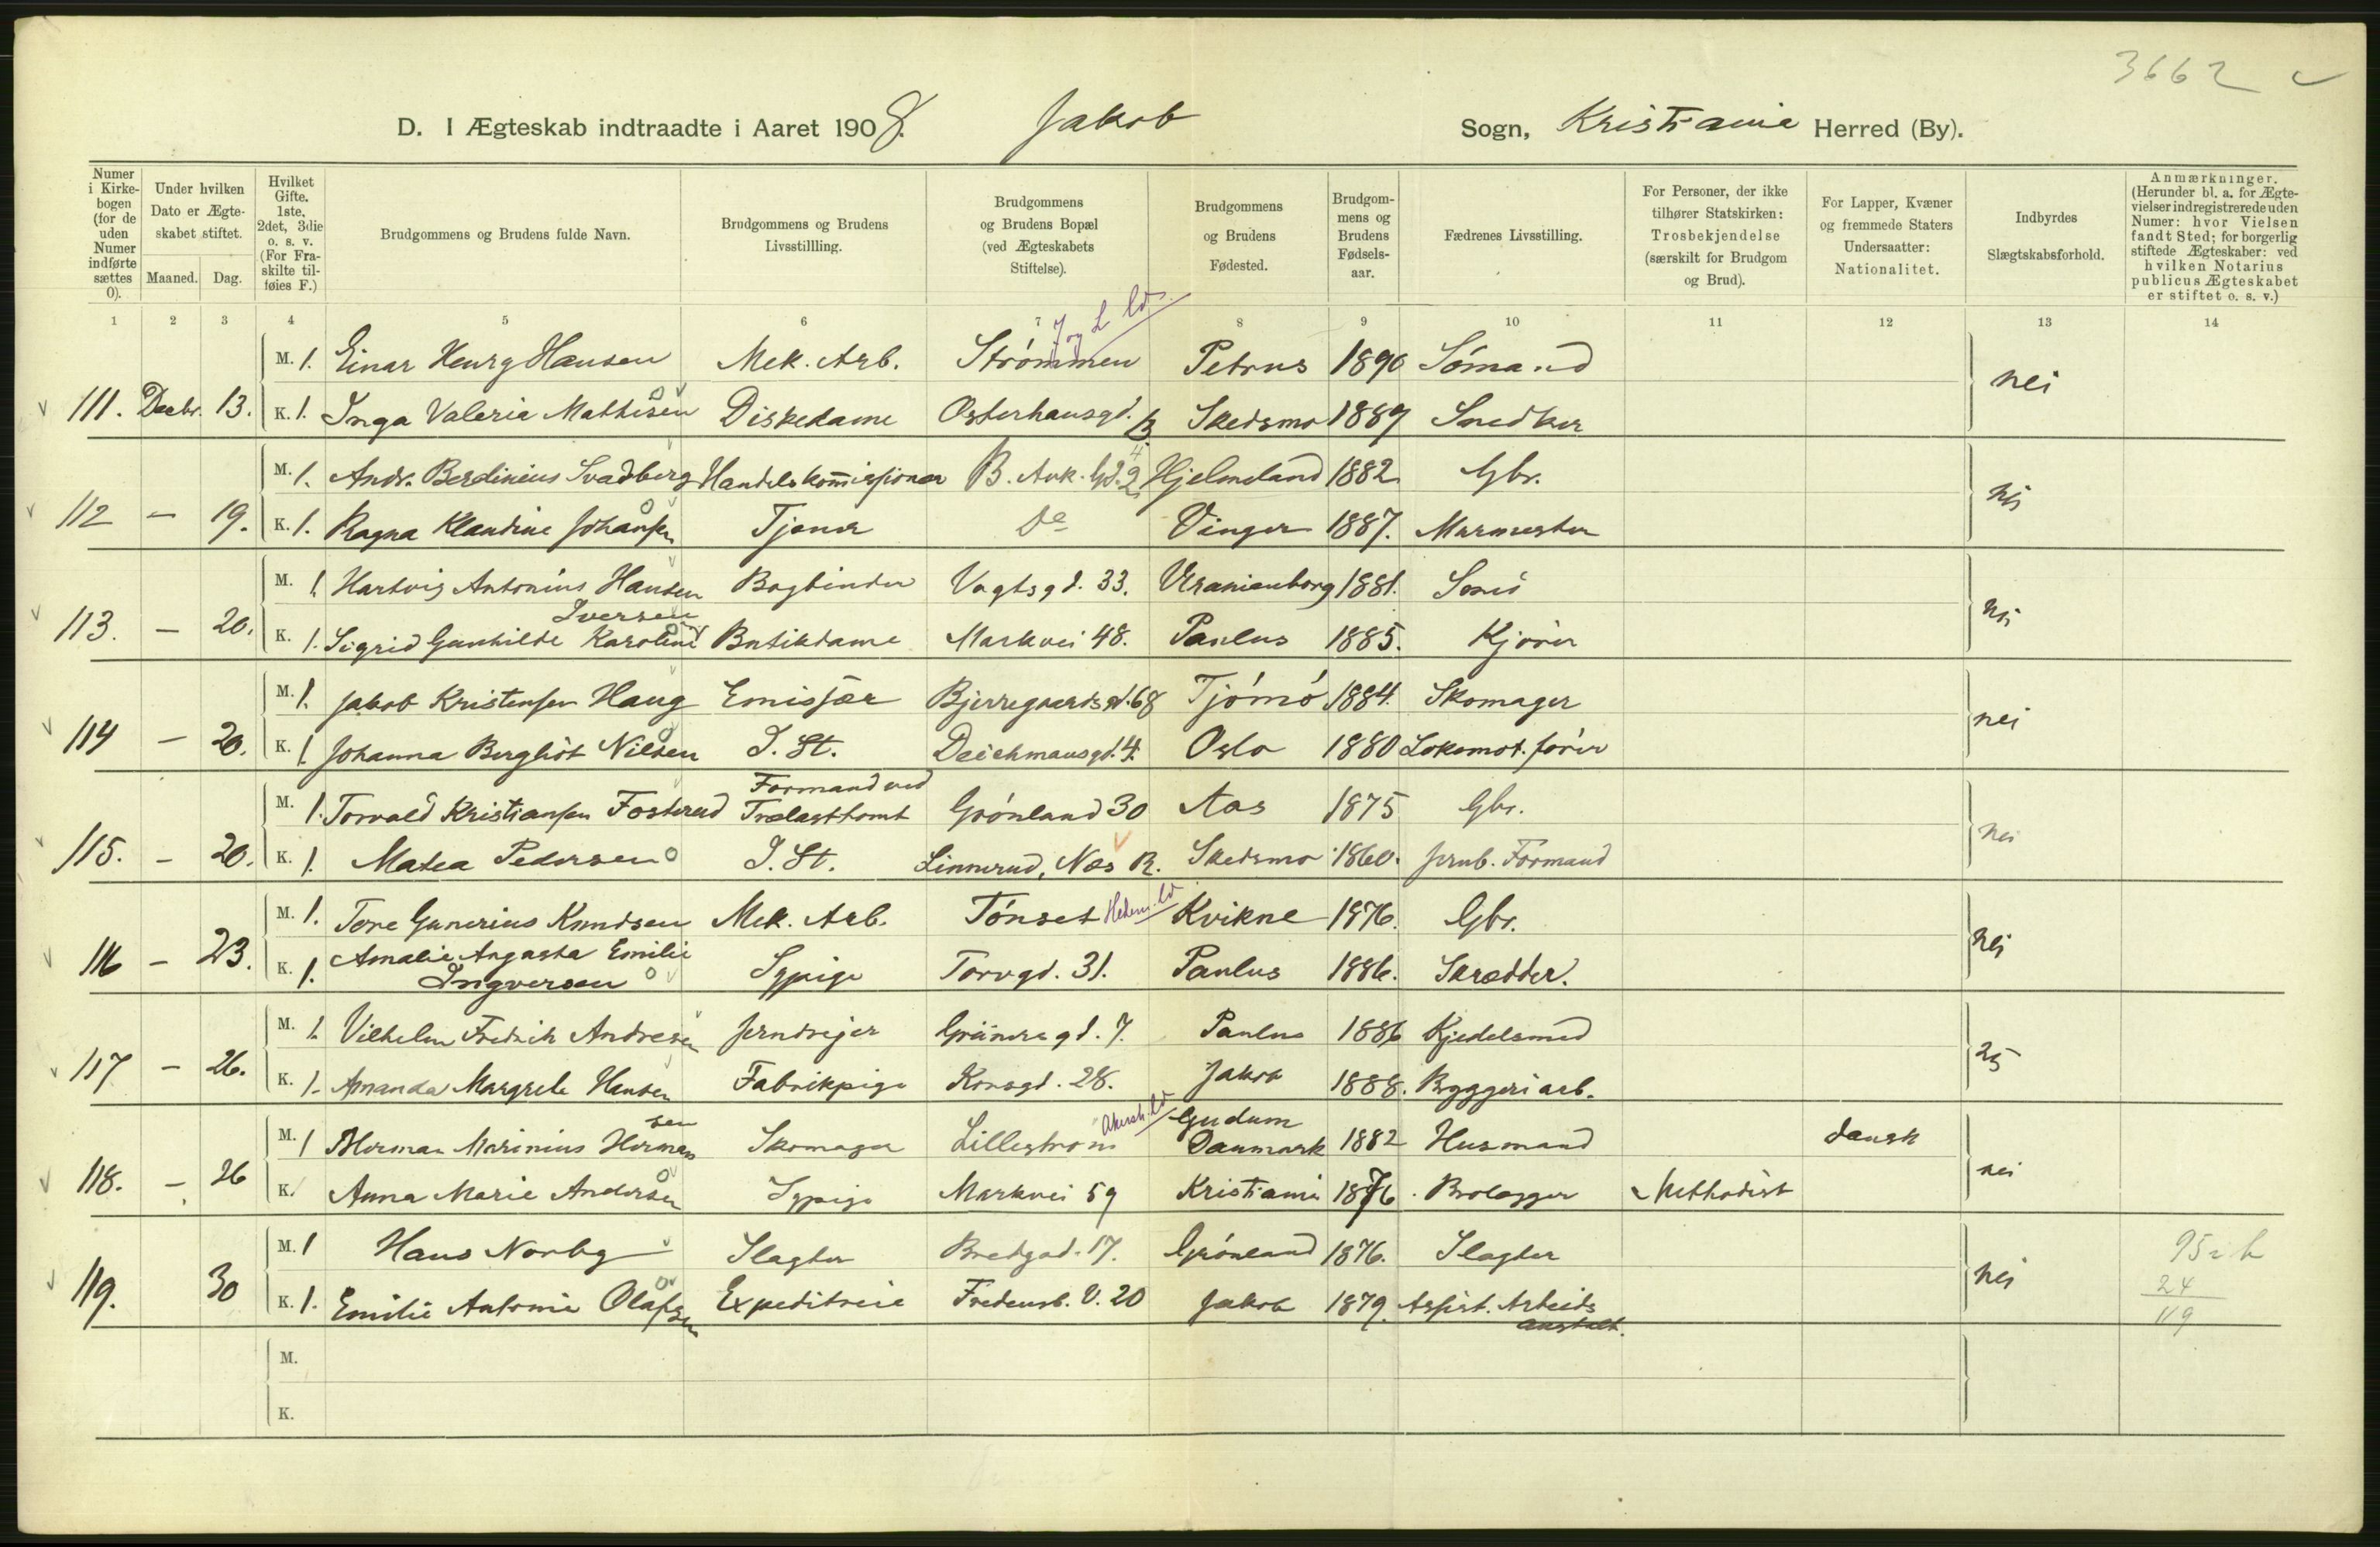 3662
D. I Ægteskab indtraadte i Aaret 1908. Jakob Sogn, Kristiania Herred (By).
Numer i Kirkebogen (for de uden Numer indførte sættes 0). Under hvilken Dato er Ægteskabet stiftet. Maaned. Dag. Hvilket Gifte. 1ste, 2det, 3die o. s. v. (For Fraskilte tilføies F.) Brudgommens og Brudens fulde Navn. Brudgommens og Brudens Livsstillling. Brudgommens og Brudens Bopæl (ved Ægteskabets Stiftelse). Brudgommens og Brudens Fødested. Brudgommens og Brudens Fødselsaar. Fædrenes Livsstilling. For Personer, der ikke tilhører Statskirken: Trosbekjendelse (særskilt for Brudgom og Brud). For Lapper, Kvæner og fremmede Staters Undersaatter: Nationalitet. Indbyrdes Slægtskabsforhold. Anmærkninger. (Herunder bl. a. for Ægtevielser indregistrerede uden Numer: hvor Vielsen fandt Sted; for borgerlig stiftede Ægteskaber: ved hvilken Notarius publicus Ægteskabet er stiftet o. s. v.)
1 2 3 4 5 6 7 8 9 10 11 12 13 14
M. 1. Einar Henry Hansen Mek. Arb. Strømmen Petrus 1890 Sømand
111. Decbr. 13. K. 1. Inga Valeria Mathisen Diskedame Osterhausgd. 13 Skedsmo 1889 Snedker nei
M. 1. Andr. Berdinius Svadberg Handelskommissionær B. Ank. Gd. 2 Hjelmeland 1882 Gbr.
112 – 19. K. 1. Ragna Klaudine Johansen Tjener Do Vinger 1887. Murmester nei
M. 1. Hartvig Antonius Hansen Bogbinder Vogtsgd. 33. Uranienborg 1881. Smed
Iversen
113. – 20. K. 1. Sigrid Gunhilde Karoline Butikdame Markvei 48. Paulus 1885. Kjører nei
M. 1. Jakob Kristensen Haug Emissær Bjerregaardsgd. 68 Tjømø 1884. Skomager
114 – 20. K. 1. Johanna Bergliot Nilsen I. St. Deichmansgd. 4. Oslo 1880 Lokomot. fører nei
Formand ved
M. 1. Torvald Kristiansen Fosterud Trælasttomt Grønland 30 Aas 1875 Gbr.
115. – 20. K. 1. Matea Pedersen I. St. Linnerud, Næs R. Skedsmo 1860. Jernb. Formand nei
M. 1. Tore Gunerius Knudsen Mek. Arb. Tønset Hedem. Kvikne 1876. Gbr.
Amalie Augusta Emilie
116 – 23. K. 1. Ingversen Sypige Torvgd. 31. Paulus 1886. Skrædder. nei
M. 1. Vilhelm Fredrik Andresen Jerndrejer Grünersgd. 7. Paulus 1886 Kjedelsmed
117 – 26. K. 1. Amanda Margrete Hansen Fabrikpige Korsgd. 28. Jakob 1888. Bryggeriarb. nei
sen Gudum
M. 1 Herman Marinius Herman Skomager Lillestrøm Danmark 1882 Husmand dansk
118. – 26 K. Anna Marie Andersen Sypige Markvei 59 Kristiania 1876. Brolægger Methodist nei
M. 1 Hans Norby Slagter Bredgad. 17. Grønland 1876. Slagter
119. 30 K. 1. Emilie Antonie Olafsen Expeditrice Fredensb. V. 20 Jakob 1879. Assist. Arbeids nei
anstalt.
95
24
119
M.
K.